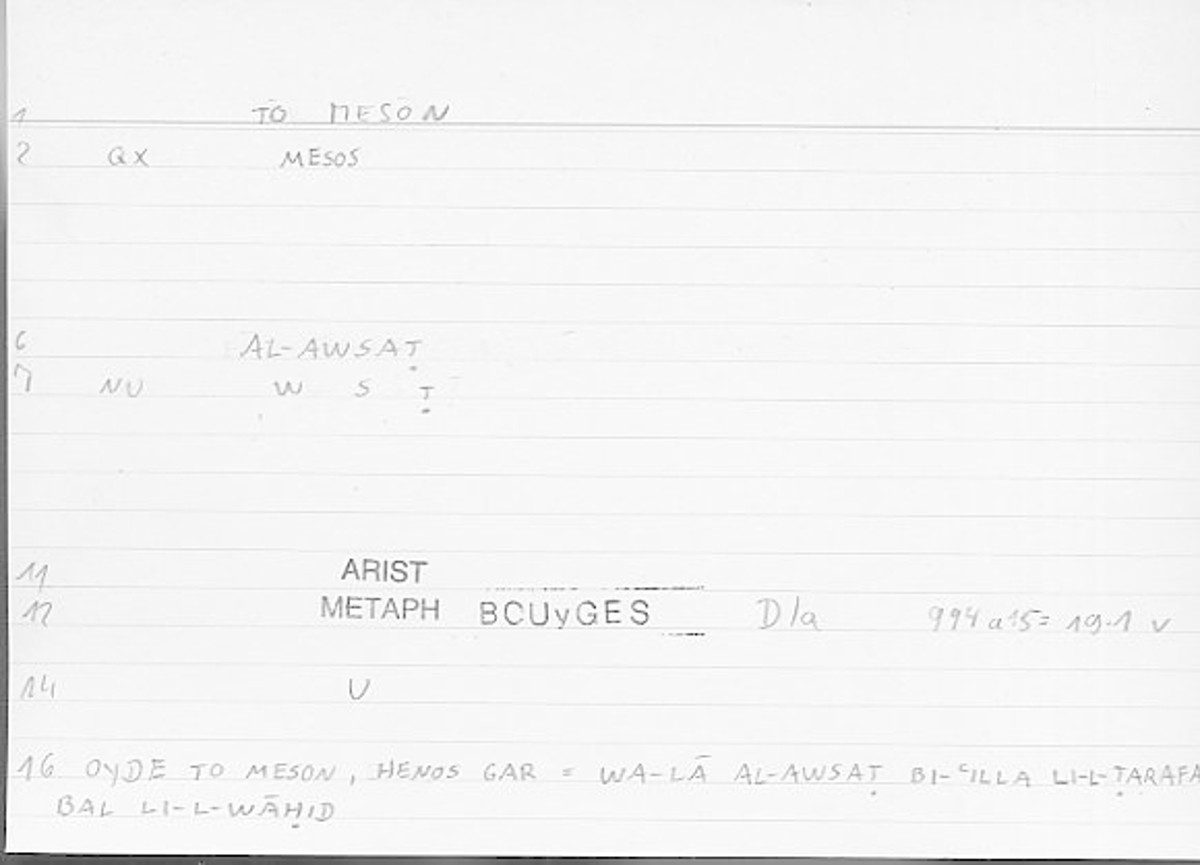 1 TO MESON
2 QX MESOS
6 AL-AWSAṬ
7 NU W S Ṭ
11 ARIST
12 METAPH BCUyGES D/a 994 a 15 = 19.1 v
14 U
16 OYDE TO MESON, HENOS GAR = WA-LĀ AL-AWSAṬ BI-ʿILLA LI-L-ṬARAFA
BAL LI-L-WĀḤID